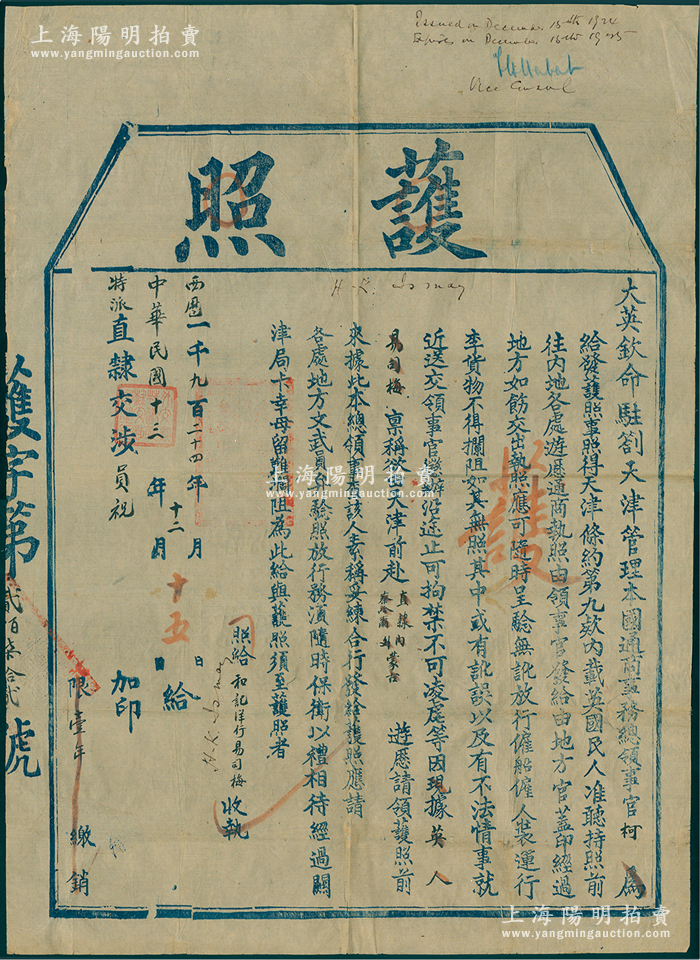 Issued on December 15th 1924
Expires on December 15th 1925
Vice Consul
護照
H. K. Ismay
大英欽命駐劄天津管理本國通商事務總領事官柯 為
給發護照事照得天津條約第九款內載英國民人准聽持照前
往內地各處遊歷通商執照由領事官發給由地方官蓋印經過
地方如飭交出執照應可隨時呈驗無訛放行僱船僱人裝運行
李貨物不得攔阻如其無照其中或有訛誤以及有不法情事就
近送交領事官懲辦沿途止可拘禁不可凌虐等因現據英人
易司梅 稟稱欲由天津前赴 直隸 內蒙古 察哈爾 遊歷請領護照前
來據此本總領事查該人素稱妥練合行發給護照應請
各處地方文武員弁驗照放行務須隨時保衛以禮相待經過關
津局卡幸毋留難攔阻為此給與護照須至護照者
照給 和記洋行易司梅 收執
H. K. Ismay
西歷一千九百二十四年十二月十五日給
中華民國十三年 月 日
特派直隸交涉員祝 加印
限壹年 繳銷
護字第貳百柒拾貳號
護
上海陽明拍賣
www.yangmingauction.com
上海陽明拍賣
www.yangmingauction.com
上海陽明拍賣
www.yangmingauction.com